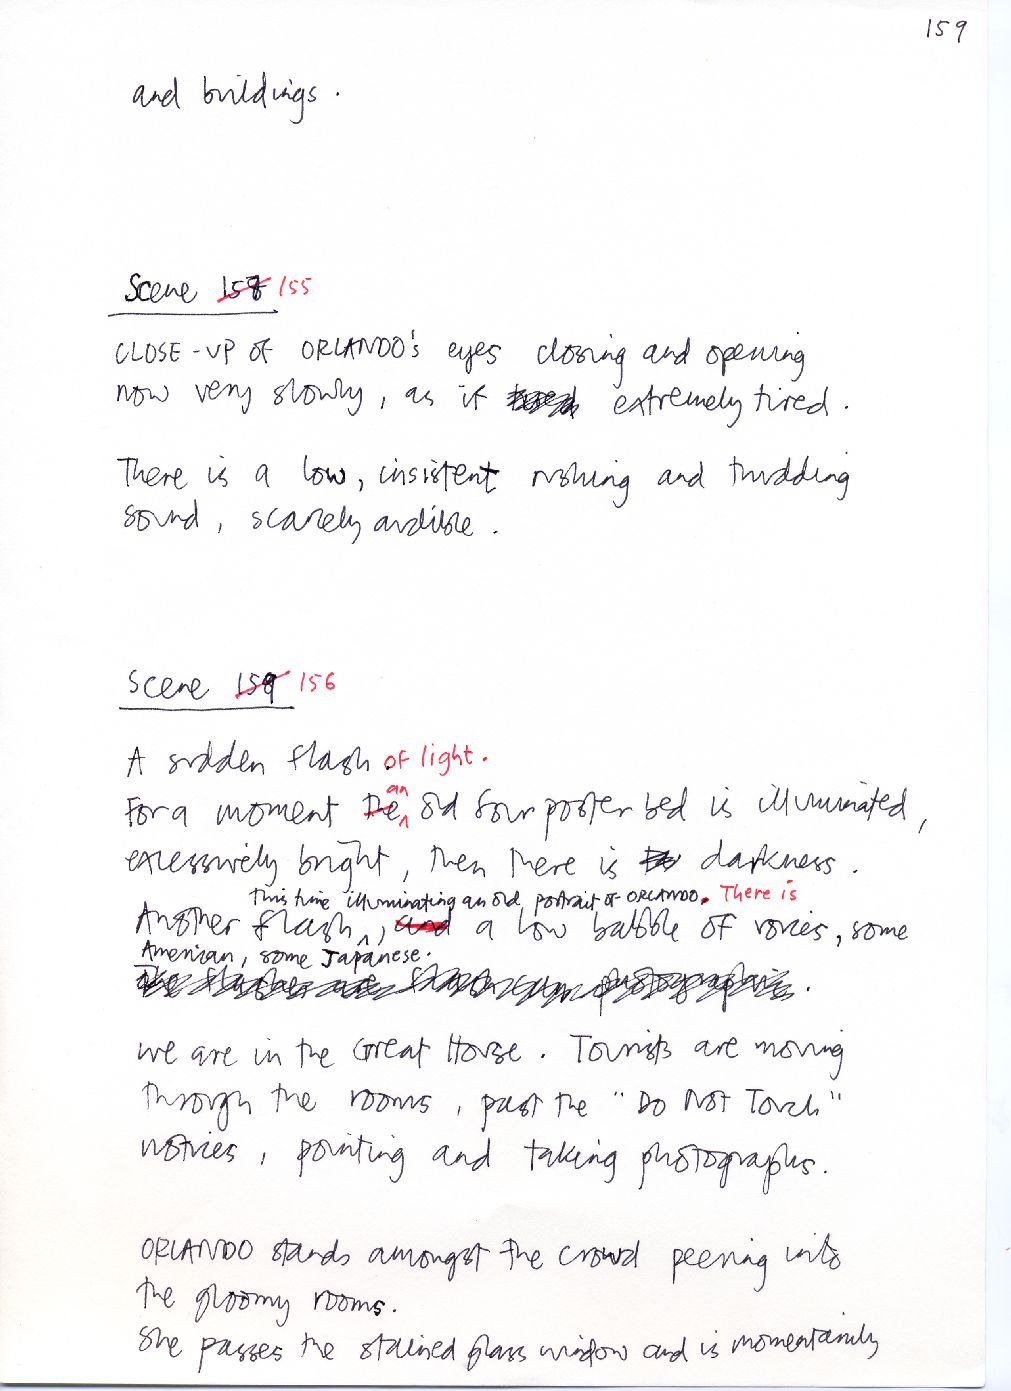 159
and buildings.
Scene 158 155
CLOSE-UP OF ORLANDO's eyes closing and opening
now very slowly, as if extremely tired.
There is a low, insistent rushing and thudding
sound, scarcely audible.
Scene 159 156
A sudden flash of light.
an
For a moment The old four poster bed is illuminated,
excessively bright, then there is darkness.
This time illuminating an old portrait of ORLANDO. There is
Another flash, and a low babble of voices, some
American, some Japanese.
We are in the Great House. Tourists are moving
through the rooms, past the "Do Not Touch"
notices, pointing and taking photographs.
ORLANDO stands amongst the crowd peering into
the gloomy rooms.
She passes the stained glass window and is momentarily